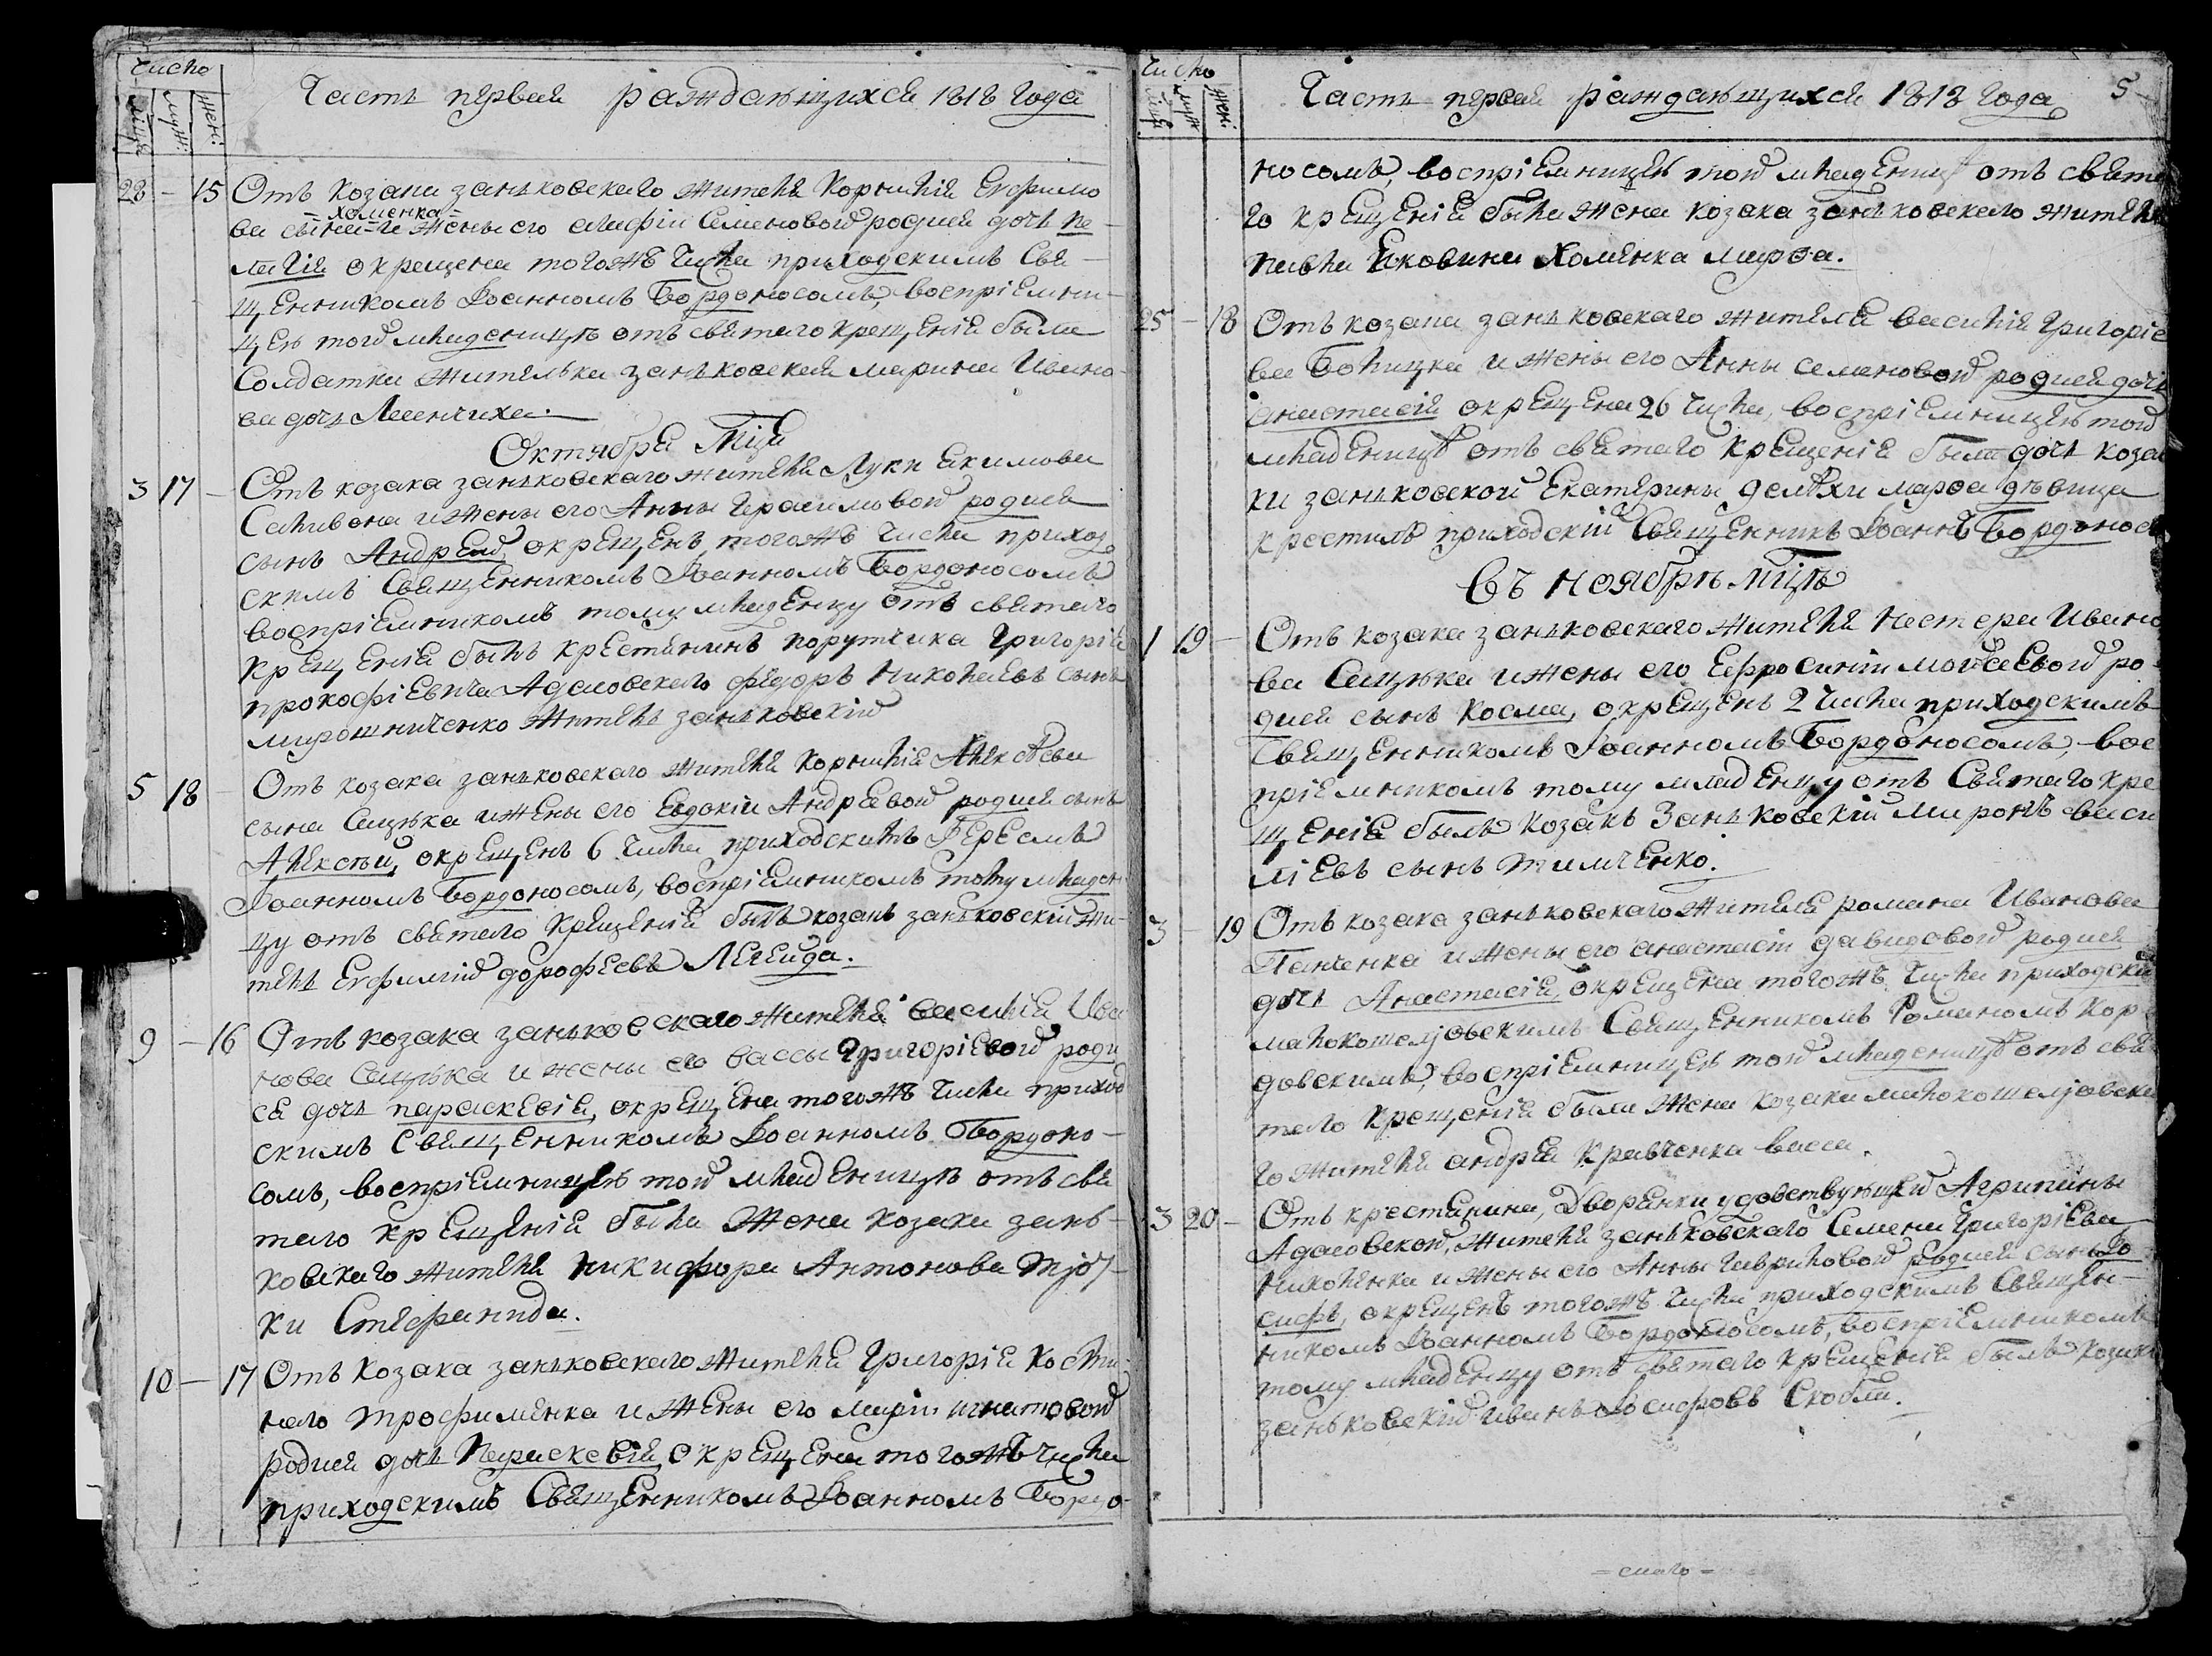 число
Часть первая раждающихся 1818 года
мсца муж: жен:
28 — 15 Отъ козака заньковскаго жителя Корнилія Ефимо
= хоменка =
ва сына и жены его Агафіи Семеновой родися дочь пе-
лагія окрещена тогожъ числа приходскимъ Свя-
щенникомъ Іоанномъ Бордоносомъ, воспріемни-
цею той младеницѣ отъ святаго крещенія была
солдатка жителька заньковская марина Ивано-
ва дочь Лесенчиха.
Октября Мца
3 17 — Отъ козака заньковскаго жителя Луки Якимова
Саливона и жены его Анны Герасимовой родися
сынъ Андрей, окрещенъ тогожъ числа приход
скимъ Священникомъ Іоанномъ Бордоносомъ
воспріемникомъ тому младенцу отъ святаго
крещенія былъ крестянинъ порутчика Григорія
прокофіевича Адасовскаго федоръ Николаевъ сынъ
мирошниченко житель заньковскій
5 18 — Отъ козака заньковскаго жителя Корнилія Алексѣева
сына Сацька и жены его Евдокіи Андреевой родися сынъ
Алексѣй, окрещенъ 6 числа приходскимъ Іереемъ
Іоанномъ Бордоносомъ, воспріемникомъ тому младен
цу отъ святаго крещенія былъ козакъ заньковскій жи-
тель Ефимій дорофеевъ Легейда.
9 — 16 Отъ козака заньковскаго жителя василія Ива
нова Сацька и жены его вассы Григоріевой роди
ся дочь параскевія, окрещена тогожъ числа приход
скимъ Священникомъ Іоанномъ Бордоно-
сомъ, воспріемницею той младеницѣ отъ свя
таго крещенія была жена козака зань-
ковскаго жителя никифора Антонова
ки Стефанида.
10 — 17 Отъ козака заньковскаго жителя Григорія Кости
наго трофименка и жены его маріи игнатовой
родися дочь Параскевія, окрещена тогожъ числа
приходскимъ Священникомъ Іоанномъ Бордо-
число
Часть первая раждающихся 1818 года 5
мсца муж: жен:
носомъ, воспріемницею той младеницѣ отъ свята
го крещенія была жена козака заньковскаго жителя
павла Яковина Хоменка марфа.
25 — 18 Отъ козака заньковскаго жителя василія Григоріе
ва Бондаря и жены его Анны семеновой родися дочь
анастасія окрещена 26 числа, воспріемницею той
младеницѣ отъ святаго крещенія была дочь коза
ки заньковской Екатерины марфа дѣвица
крестилъ приходскій Священникъ Іоаннъ Бордоносъ
Въ ноябрѣ мцѣ
1 19 — Отъ козака заньковскаго жителя нестера Ивано
ва Сацька и жены его Ефросиніи мойсеевой ро-
дися сынъ Косма, окрещенъ 2 числа приходскимъ
Священникомъ Іоанномъ Бордоносомъ, вос
пріемникомъ тому младенцу отъ Святаго кре
щенія былъ козакъ Заньковскій Миронъ васи
ліевъ сынъ тимченко.
3 — 19 Отъ козака заньковскаго жителя романа Иванова
Панченка и жены его анастасіи давидовой родися
дочь Анастасія, окрещена тогожъ числа приходски
малокошелювскимъ Священникомъ Романомъ Кор-
довскимъ, воспріемницею той младеницѣ отъ свя
таго крещенія была жена козака малокошелювска
го жителя андрея Кравченка васса.
3 20 — Отъ крестянина, Дворянки удовствующей Агрипины
Адасовской, жителя заньковскаго Семена Григоріева
николенка и жены его Анны Гавриловой родися сынъ Іо
сифъ, окрещенъ тогожъ числа приходскимъ Священ-
никомъ Іоанномъ Бордоносомъ, воспріемникомъ
тому младенцу отъ святаго крещенія былъ козакъ
заньковскій иванъ Іосифовъ Скобля.